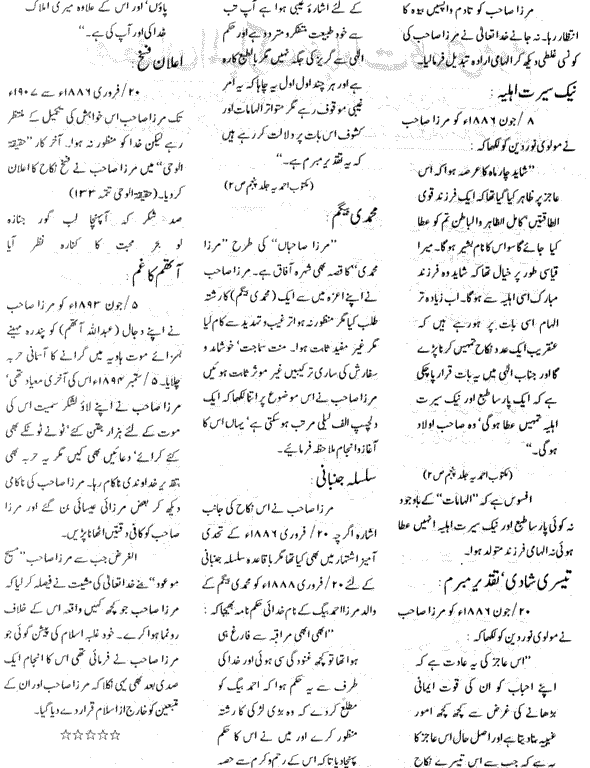 مرزا صاحب کو تادم واپسیں بیوہ کا
انتظار رہا۔ نہ جانے خدا تعالیٰ نے مرزا صاحب کی
کونسی غلطی دیکھ کر الہامی ارادہ تبدیل فرما لیا۔
نیک سیرت اہلیہ :
۸/ جون ۱۸۸۶ء کو مرزا صاحب
نے مولوی نوردین کو لکھا کہ :
’’شاید چار ماہ کا عرصہ ہوا کہ اس
عاجز پر ظاہر کیا گیا تھا کہ ایک فرزند قوی
الطاقتین‘ کامل الظاہر والباطن تم کو عطا
کیا جائے گا سو اس کا نام بشیر ہوگا۔ میرا
قیاسی طور پر خیال تھا کہ شاید وہ فرزند
مبارک اسی اہلیہ سے ہوگا۔ اب زیادہ تر
الہام اسی بات پر ہو رہے ہیں کہ
عنقریب ایک عدد نکاح تمہیں کرنا پڑے
گا اور جناب الٰہی میں یہ بات قرار پا چکی
ہے کہ ایک پارسا طبع اور نیک سیرت
اہلیہ تمہیں عطا ہوگی‘ وہ صاحب اولاد
ہوگی۔‘‘
(مکتوب احمدیہ جلد پنجم ص ۲)
افسوس ہے کہ ’’الہامات‘‘ کے باوجود
نہ کوئی پارسا طبع اور نیک سیرت اہلیہ انہیں عطا
ہوئی نہ الہامی فرزند متولد ہوا۔
تیسری شادی‘ تقدیر مبرم :
۲۰/ جون ۱۸۸۶ء کو مرزا صاحب
نے مولوی نوردین کو لکھا کہ :
’’اس عاجز کی یہ عادت ہے کہ
اپنے احباب کو ان کی قوت ایمانی
بڑھانے کی غرض سے کچھ کچھ امور
غیبیہ بتا دیتا ہے اور اصل حال اس عاجز کا
یہ ہے کہ جب سے اس تیسرے نکاح
کے لئے اشارۂ غیبی ہوا ہے آپ تب
سے خود طبیعت متفکر و متردد ہے اور حکم
الٰہی سے گریز کی جگہ نہیں مگر بالطبع کارہ
ہے اور ہر چند اول اول یہ چاہا کہ یہ امر
غیبی موقوف رہے مگر متواتر الہامات اور
کشوف اس بات پر دلالت کر رہے ہیں
کہ یہ تقدیر مبرم ہے۔‘‘
(مکتوب احمدیہ جلد پنجم ص ۲)
محمدی بیگم :
’’مرزا صاحباں‘‘ کی طرح ’’مرزا
محمدی‘‘ کا قصہ بھی شہرہ آفاق ہے۔ مرزا صاحب
نے اپنے اعزہ میں سے ایک (محمدی بیگم) کا رشتہ
طلب کیا مگر منظور نہ ہوا‘ ترغیب و تہدید سے کام لیا
مگر غیر مفید ثابت ہوا۔ منت سماجت‘ خوشامد و
سفارش کی ساری ترکیبیں غیر موثر ثابت ہوئیں
مرزا صاحب نے اس موضوع پر اتنا لکھا کہ ایک
دلچسپ الف لیلٰی مرتب ہو سکتی ہے‘ یہاں اس کا
آغاز و انجام ملاحظہ فرمائیے۔
سلسلہ جنبانی :
مرزا صاحب نے اس نکاح کی جانب
اشارہ اگرچہ ۲۰/ فروری ۱۸۸۶ء کے تحدی
آمیز اشتہار میں بھی کیا تھا مگر باقاعدہ سلسلہ جنبانی
کے لئے ۲۰/ فروری ۱۸۸۸ء کو محمدی بیگم کے
والد مرزا احمد بیگ کے نام خدائی حکم نامہ بھیجا کہ :
’’ابھی ابھی مراقبہ سے فارغ ہی
ہوا تھا تو کچھ غنودگی سی ہوئی اور خدا کی
طرف سے یہ حکم ہوا کہ احمد بیگ کو
مطلع کر دے کہ وہ بڑی لڑکی کا رشتہ
منظور کرے اور میں نے اس کا حکم
پہنچا دیا تاکہ اس کے رحم و کرم سے حصہ
پاؤں‘ اور اس کے علاوہ میری املاک
خدا کی اور آپ کی ہے۔‘‘
اعلان فسخ :
۲۰/ فروری ۱۸۸۶ء سے ۱۹۰۷ء
تک مرزا صاحب اس خواہش کی تکمیل کے منتظر
رہے لیکن خدا کو منظور نہ ہوا۔ آخر کار ’’حقیقۃ
الوحی‘‘ میں مرزا صاحب نے فسخ نکاح کا اعلان
کر دیا۔ (حقیقۃ الوحی تتمہ ۱۳۳)
صد شکر کہ آپہنچا لب گور جنازہ
لو بحر محبت کا کنارہ نظر آیا
آتھم کا غم :
۵/ جون ۱۸۹۳ء کو مرزا صاحب
نے اپنے دجال (عبداللہ آتھم) کو پندرہ مہینے
بسزائے موت ہاویہ میں گرانے کا آسمانی حربہ
چلایا۔ ۵/ ستمبر ۱۸۹۴ء اس کی آخری معیاد تھی‘
مرزا صاحب نے اپنے لاؤ لشکر سمیت اس کی
موت کے لئے ہزار جتن کئے‘ ٹونے ٹوٹکے بھی
کئے کرائے‘ دعائیں بھی کیں مگر یہ حربہ بھی
تقدیر خداوندی ناکام رہا۔ مرزا صاحب کی ناکامی
دیکھ کر بعض مرزائی عیسائی بن گئے اور مرزا
صاحب کو کافی دقتیں اٹھانا پڑیں۔
الغرض جب سے مرزا صاحب ’’مسیح
موعود‘‘ بنے خدا تعالیٰ کی مشیت نے فیصلہ کر لیا کہ
مرزا صاحب جو کچھ کہیں واقعہ اس کے خلاف
رونما ہوا کرے۔ خود غلبہ اسلام کی پیش گوئی جو
مرزا صاحب نے فرمائی تھی اس کا انجام ایک
صدی بعد بھی یہی نکلا کہ مرزا صاحب اور ان کے
متبعین کو خارج از اسلام قرار دے دیا گیا۔
☆☆☆☆☆